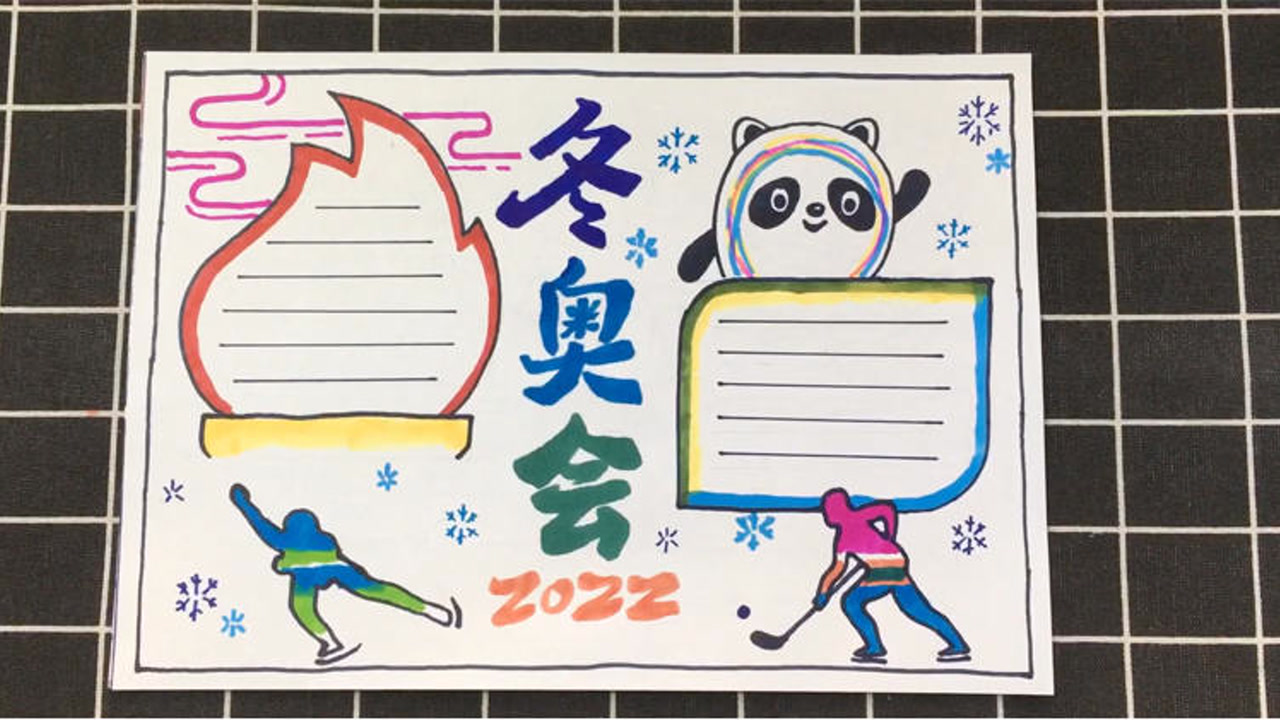 冬奥会
2022